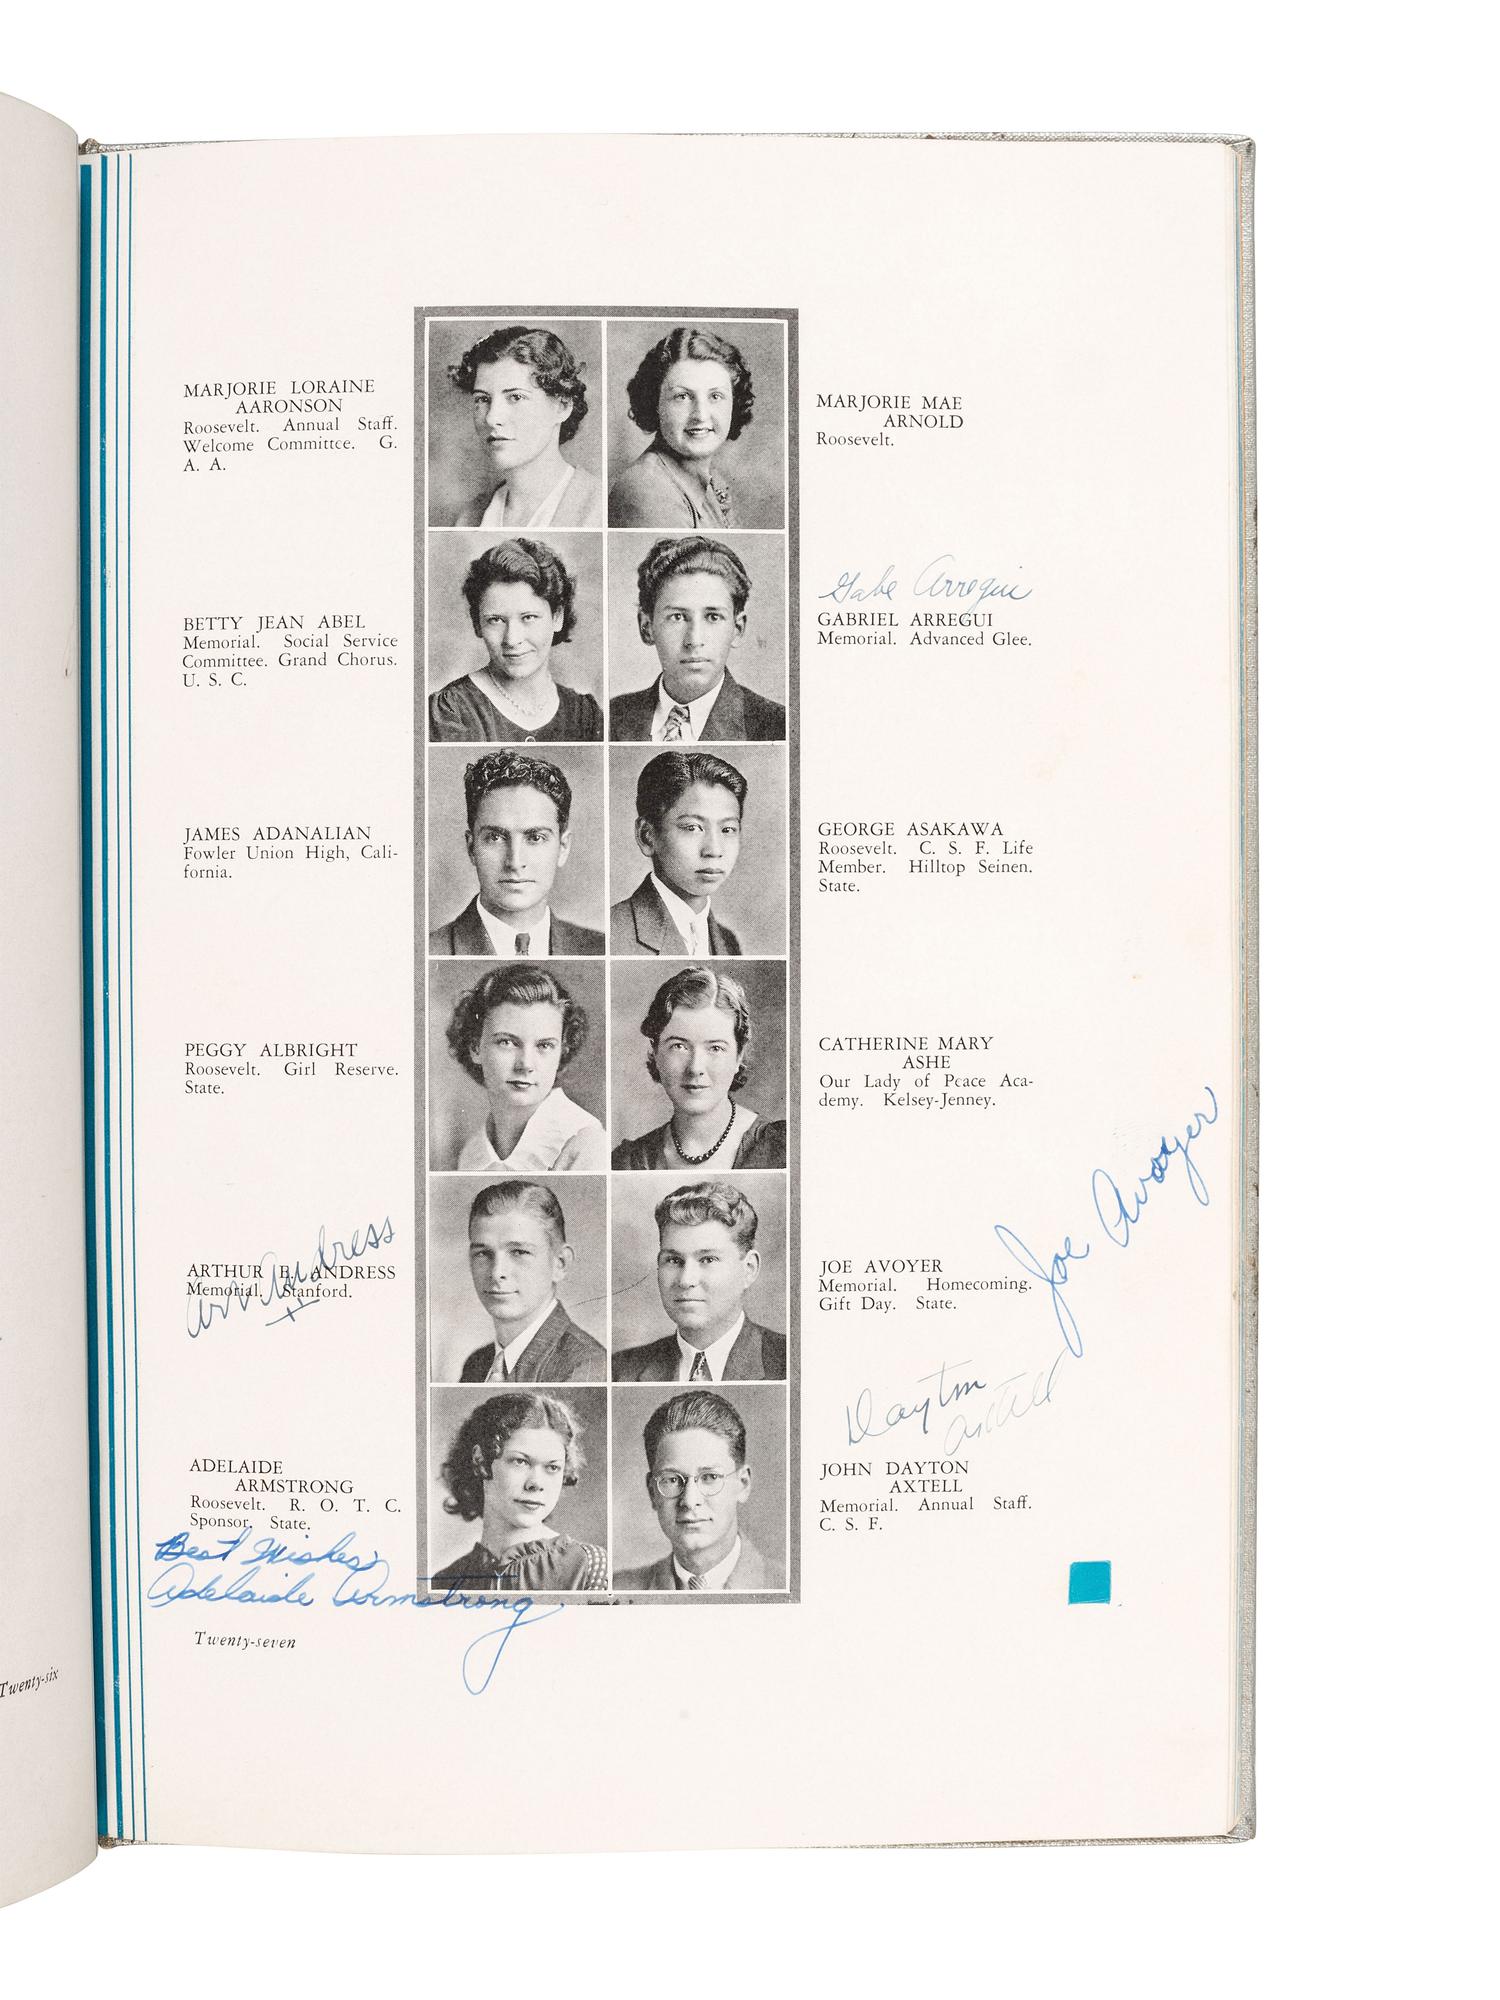 MARJORIE LORAINE
AARONSON
Roosevelt. Annual Staff.
Welcome Committee. G.
A. A.
BETTY JEAN ABEL
Memorial. Social Service
Committee. Grand Chorus.
U. S. C.
JAMES ADANALIAN
Fowler Union High, Cali-
fornia.
PEGGY ALBRIGHT
Roosevelt. Girl Reserve.
State.
ARTHUR E. ANDRESS
Memorial. Stanford.
Andress
ADELAIDE
ARMSTRONG
Roosevelt. R. O. T. C.
Sponsor. State.
Best Wishes
Adelaide Armstrong
Twenty-seven
MARJORIE MAE
ARNOLD
Roosevelt.
Gabe Arregui
GABRIEL ARREGUI
Memorial. Advanced Glee.
GEORGE ASAKAWA
Roosevelt. C. S. F. Life
Member. Hilltop Seinen.
State.
CATHERINE MARY
ASHE
Our Lady of Peace Aca-
demy. Kelsey-Jenney.
JOE AVOYER
Memorial. Homecoming.
Gift Day. State.
Joe Avoyer
Dayton
Axtell
JOHN DAYTON
AXTELL
Memorial. Annual Staff.
C. S. F.
Twenty-six